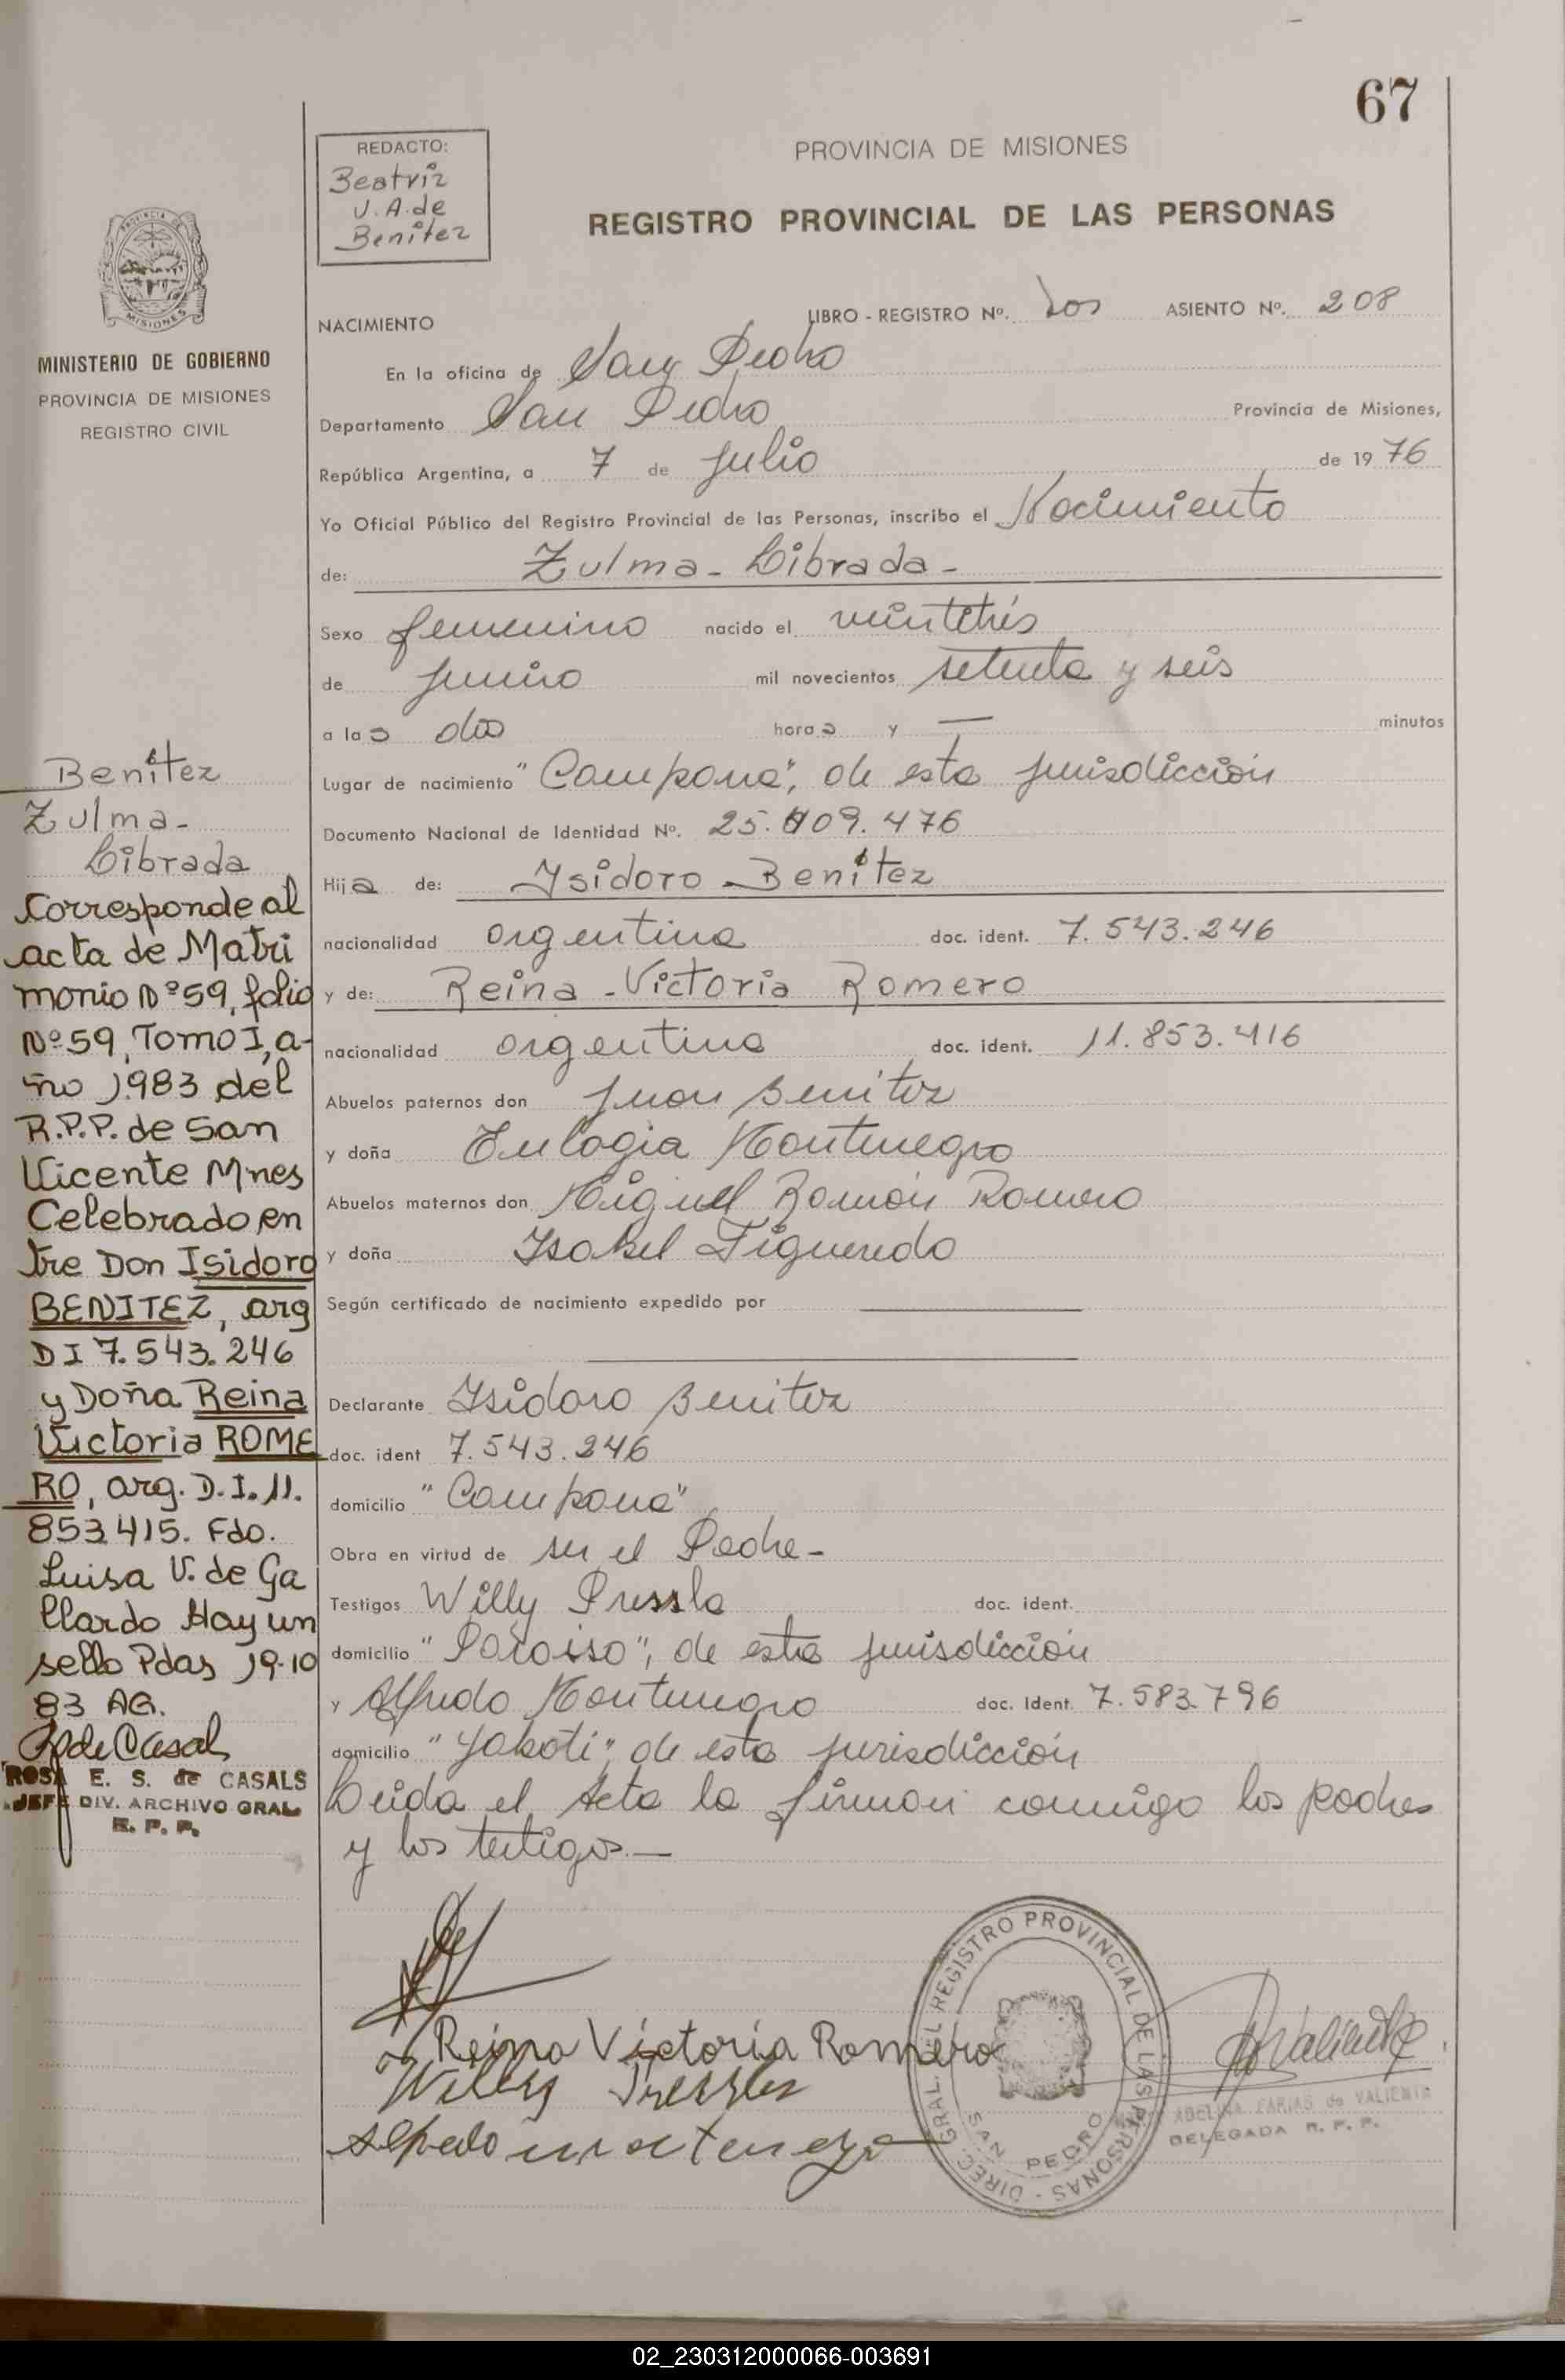 67
REDACTO:
Beatriz
V. A. de
Benitez
PROVINCIA DE MISIONES
REGISTRO PROVINCIAL DE LAS PERSONAS
PROVINCIA DE
MISIONES
MINISTERIO DE GOBIERNO
PROVINCIA DE MISIONES
REGISTRO CIVIL
NACIMIENTO
LIBRO - REGISTRO Nº. Dos ASIENTO Nº. 208
En la oficina de San Pedro
Departamento San Pedro Provincia de Misiones,
República Argentina, a 7 de julio de 1976
Yo Oficial Público del Registro Provincial de las Personas, inscribo el Nacimiento
de: Zulma - Librada -
Sexo femenino nacido el veintitrés
de junio mil novecientos setenta y seis
a las dos horas y — minutos
Lugar de nacimiento "Campana", de esta jurisdicción
Documento Nacional de Identidad Nº. 25. 09. 476
Hija de: Isidoro Benitez
nacionalidad argentina doc. ident. 7.543.246
y de: Reina - Victoria Romero
nacionalidad argentina doc. ident. 11.853.416
Abuelos paternos don Juan Benitez
y doña Eulogia Montenegro
Abuelos maternos don Miguel Ramón Romero
y doña Isabel Figueredo
Según certificado de nacimiento expedido por
Declarante Isidoro Benitez
doc. ident 7.543.246
domicilio "Campana"
Obra en virtud de ser el Padre -
Testigos Willy Pressla doc. ident.
domicilio "Paraiso", de esta jurisdicción
y Alfredo Montenegro doc. Ident. 7.583.796
domicilio "Yaboti", de esta jurisdicción
Leida el Acta la firman conmigo los padres
y los testigos.—
Benítez
Zulma -
Librada
Corresponde al
acta de Matri
monio Nº 59, folio
Nº 59, Tomo I, a-
ño 1.983 del
R.P.P. de San
Vicente Mnes
Celebrado en
tre Don Isidoro
BENITEZ, arg
DI 7.543.246
y Doña Reina
Victoria ROME
RO, arg. D.I. 11.
853.415. Fdo.
Luisa V. de Ga
llardo Hay un
sello Pdas 19-10
83 AG.
R de Casals
ROSA E. S. de CASALS
JEFE DIV. ARCHIVO GRAL.
R. P. P.
Reina Victoria Romero
Willy Pressler
DIREC. GRAL. DEL REGISTRO PROVINCIAL DE LAS PERSONAS -
SAN PEDRO
ADELINA FARIAS de VALIENTE
DELEGADA R. P. P.
02_230312000066-003691